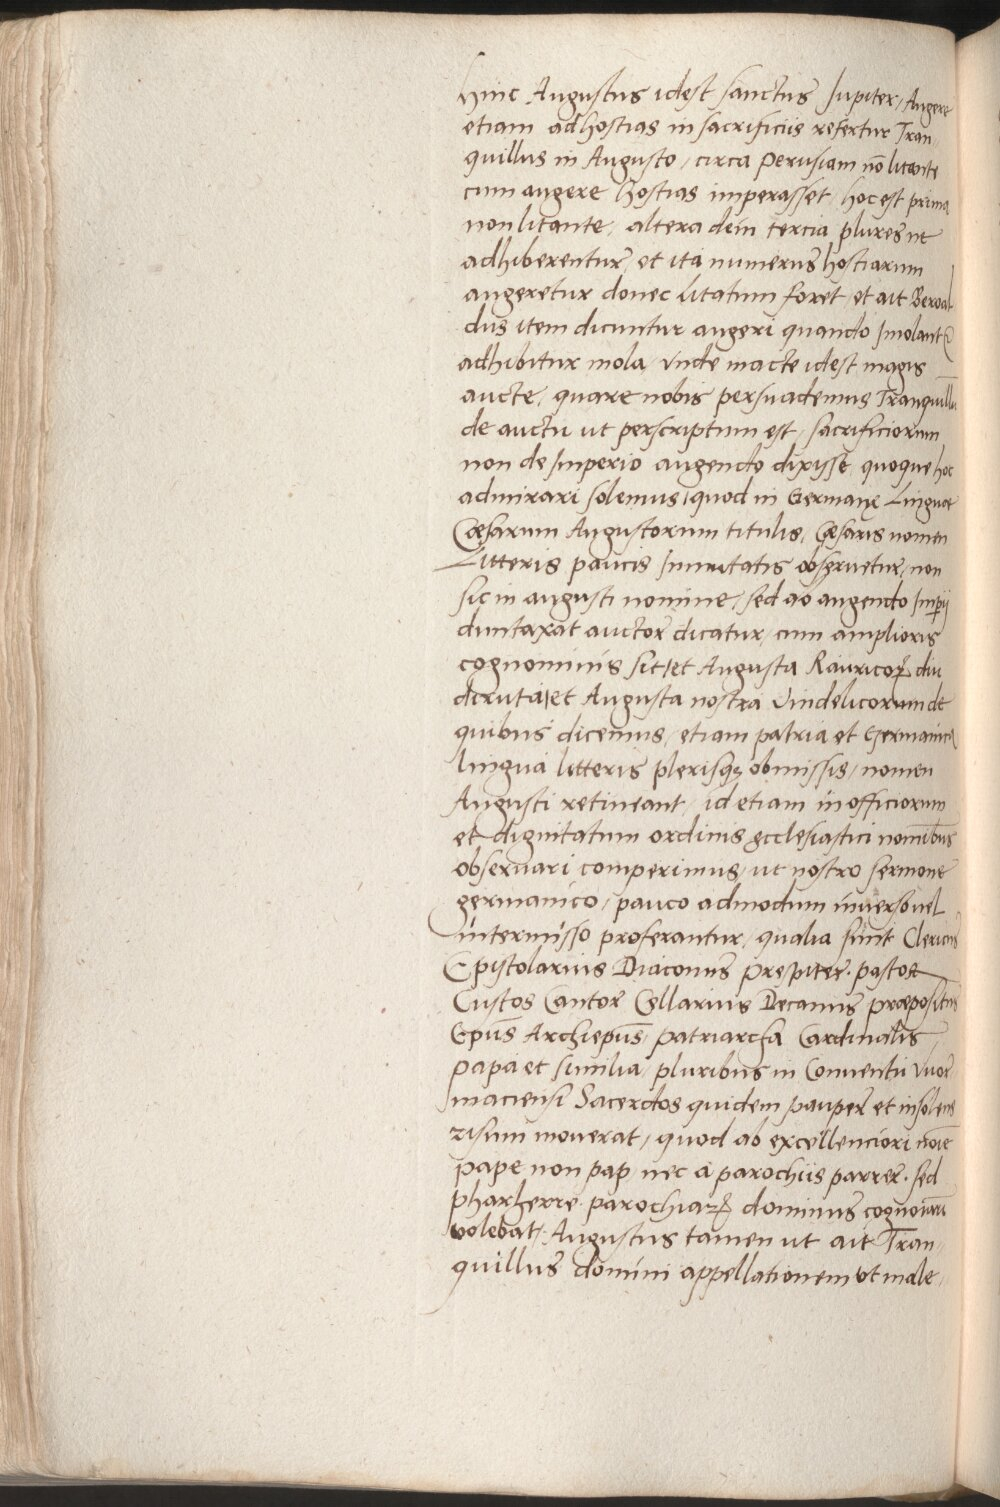 Hinc Augustus idest sanctus Jupiter, Augere
etiam ad hostias in sacrificiis refertur Tran,
quillus in Augusto, circa Perusiam nō litante
cum augere hostias imperasset, hoc est prima
non litante, altera dein tercia plures ut
adhiberentur, et ita numerus hostiarum
augeretur donec litatum foret, et ait Beroal
dus item dicuntur augeri quando Imolantꝰ
adhibitur mola, vnde macte idest magis
aucte, quare nobis persuademus Tranquillū
de auctu ut perscriptum est, sacrificiorum
non de Imperio augendo dixisse, quoque hoc
admirari solemus, quod in Germanę Linguæ
Cæsarum Augustorum titulis, Cæsaris nomen
Litteris paucis Immutatis obseruetur, non
sic in augusti nomine, sed ab augendo Imperij
duntaxat auctor dicatur, cum amplioris
cognominis sit, et Augusta Rauricoꝝ diu
diruta, et Augusta nostra Vindelicorum de
quibus dicemus, etiam patria et Germanica
lingua litteris plerisqꝫ obmissis, nomen
Augusti retineant, id etiam in officiorum
et dignitatum ordinis ęcclesiastici nominibus
obseruari comperimus, ut nostro sermone
germanico, pauco admodum inuerso vel
intermisso proferantur, qualia sunt Clericus
Epistolarius Diaconus Prespiter. pastor
Custos Cantor Cellarius Decanus præpositus
Ep̄us Archiep̄us, patriarcha Cardinalis
papa et similia, pluribus in Conuentu Vuor
maciensi Sacerdos quidem pauper et insolens
risum mouerat, quod ab excellenciori nōie
pape non pap, nec a parochiis parrer. sed
pharherre parochiaꝝ dominus cognominari
volebat, Augustus tamen ut ait Tran,
quillus domini appellationem ut male,